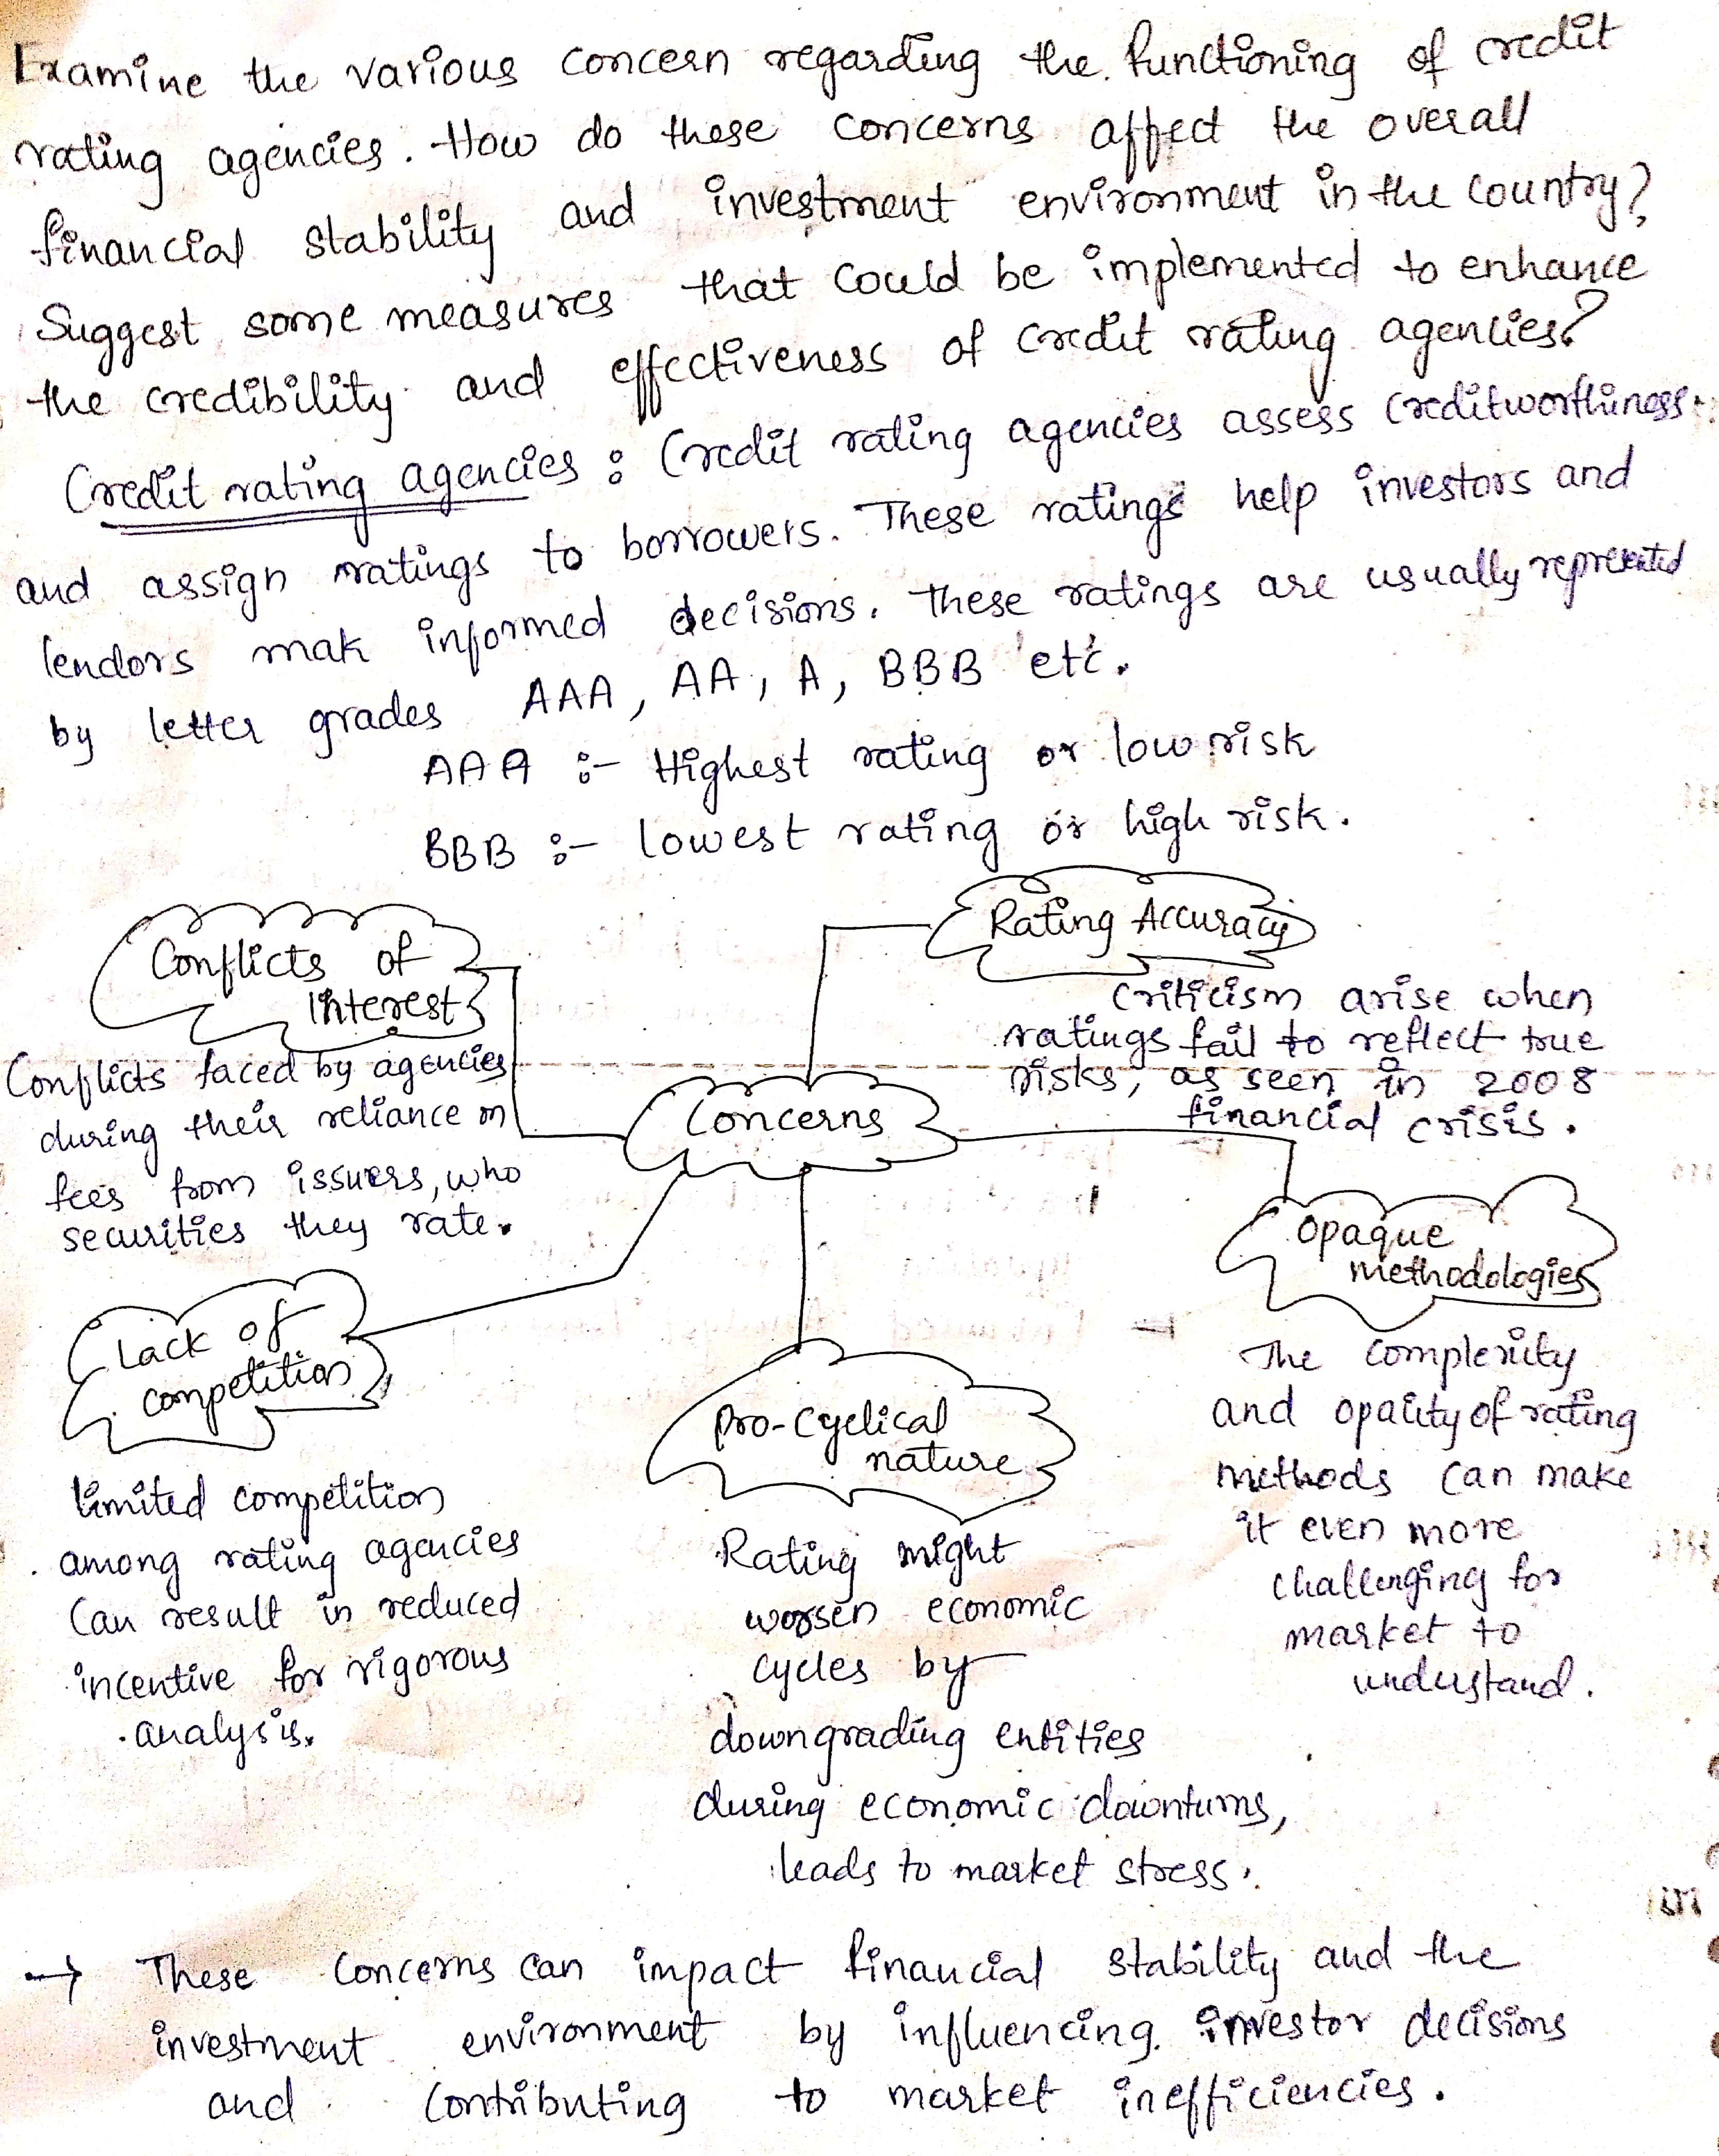 Examine the various concern regarding the functioning of credit
rating agencies. How do these concerns affect the overall
financial stability and investment environment in the country?
Suggest some measures that could be implemented to enhance
the credibility and effectiveness of credit rating agencies?
Credit rating agencies : Credit rating agencies assess creditworthiness
and assign ratings to borrowers. These ratings help investors and
lendors mak informed decisions. These ratings are usually represented
by letter grades AAA, AA, A, BBB etc.
AAA :- Highest rating or low risk
BBB :- lowest rating or high risk.
Conflicts of
Interest
Conflicts faced by agencies
during their reliance on
fees from issuers, who
securities they rate.
Rating Accuracy
Criticism arise when
ratings fail to reflect true
risks, as seen in 2008
financial crisis.
Concerns
Opaque
methodologies
The complexity
and opacity of rating
methods can make
it even more
challenging for
market to
understand.
Lack of
competition
limited competition
among rating agencies
Can result in reduced
incentive for rigorous
analysis.
Pro-Cyclical
nature
Rating might
worsen economic
cycles by
downgrading entities
during economic downturns,
leads to market stress.
→ These Concerns can impact financial stability and the
investment environment by influencing investor decisions
and contributing to market inefficiencies.